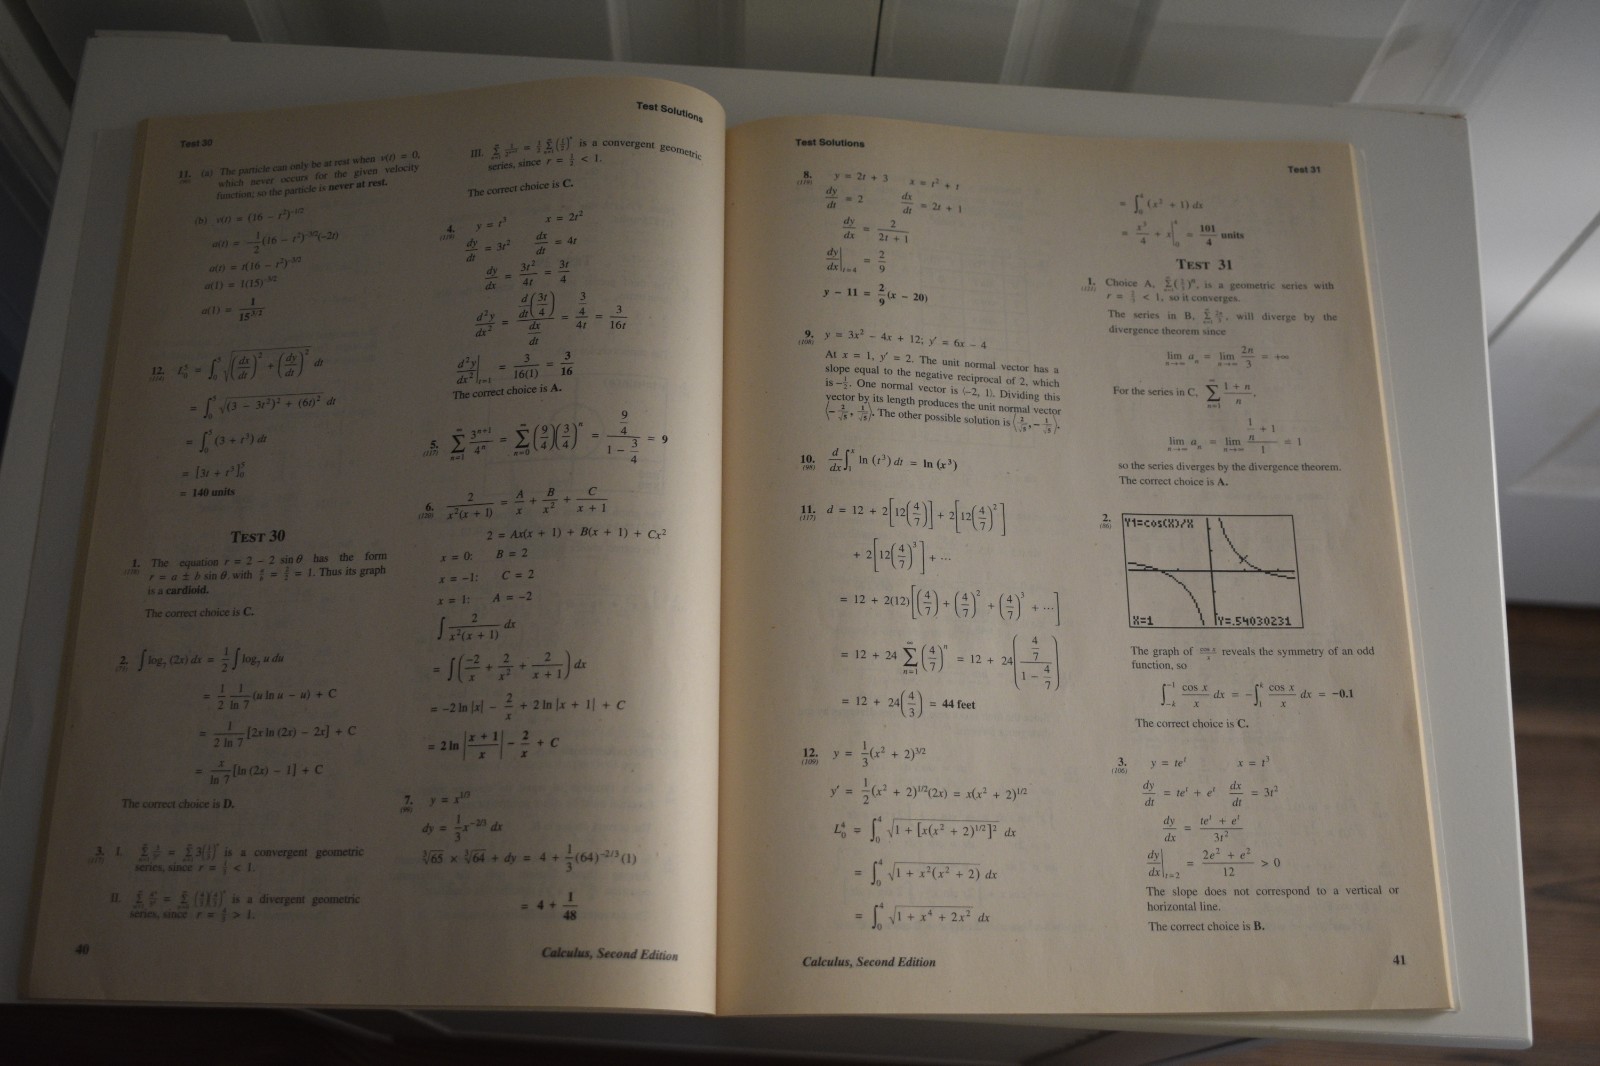 Test Solutions
Test 30
11. (a) The particle can only be at rest when v(t) = 0,
(90)
which never occurs for the given velocity
function; so the particle is never at rest.
(b) v(t) = (16 − t²)^-1/2
a(t) = −1/2(16 − t²)^-3/2(−2t)
a(t) = t(16 − t²)^-3/2
a(1) = 1(15)^-3/2
a(1) = 1/15^3/2
12. L₀⁵ = ∫₀⁵ √((dx/dt)² + (dy/dt)²) dt
= ∫₀⁵ √((3 − 3t²)² + (6t)²) dt
= ∫₀⁵ (3 + t³) dt
= [3t + t³]₀⁵
= 140 units
TEST 30
1. The equation r = 2 − 2 sin θ has the form
r = a ± b sin θ, with a/b = 2/2 = 1. Thus its graph
is a cardioid.
The correct choice is C.
2. ∫ log₇ (2x) dx = 1/2 ∫ log₇ u du
= 1/2 1/ln 7 (u ln u − u) + C
= 1/(2 ln 7) [2x ln (2x) − 2x] + C
= x/ln 7 [ln (2x) − 1] + C
The correct choice is D.
3. I. is a convergent geometric
(117)
series, since r = < 1.
II. is a divergent geometric
series, since r = > 1.
III. is a convergent geometric
series, since r = 1/2 < 1.
The correct choice is C.
4. y = t³ x = 2t²
dy/dt = 3t² dx/dt = 4t
dy/dx = 3t²/4t = 3t/4
d²y/dx² = (d/dt(3t/4))/(dx/dt) = (3/4)/4t = 3/16t
d²y/dx²|t=1 = 3/16(1) = 3/16
The correct choice is A.
5. ∞Σn=1 3^(n+1)/4^n = ∞Σn=0 (9/4)(3/4)^n = (9/4)/(1 − 3/4) = 9
(117)
6. 2/(x²(x + 1)) = A/x + B/x² + C/(x + 1)
(120)
2 = Ax(x + 1) + B(x + 1) + Cx²
x = 0: B = 2
x = −1: C = 2
x = 1: A = −2
∫ 2/(x²(x + 1)) dx
= ∫(−2/x + 2/x² + 2/(x + 1)) dx
= −2 ln |x| − 2/x + 2 ln |x + 1| + C
= 2 ln |(x + 1)/x| − 2/x + C
7. y = x^1/3
(96)
dy = 1/3 x^-2/3 dx
∛65 × ∛64 + dy = 4 + 1/3(64)^-2/3(1)
= 4 + 1/48
40
Calculus, Second Edition
Test Solutions
Test 31
8. y = 2t + 3 x = t² + t
(119)
dy/dt = 2 dx/dt = 2t + 1
dy/dx = 2/(2t + 1)
dy/dx|t=4 = 2/9
y − 11 = 2/9(x − 20)
9. y = 3x² − 4x + 12; y′ = 6x − 4
(108)
At x = 1, y′ = 2. The unit normal vector has a
slope equal to the negative reciprocal of 2, which
is −1/2. One normal vector is ⟨−2, 1⟩. Dividing this
vector by its length produces the unit normal vector
⟨−2/√5, 1/√5⟩. The other possible solution is ⟨2/√5, −1/√5⟩.
10. d/dx ∫₁ˣ ln (t³) dt = ln (x³)
(98)
11. d = 12 + 2[12(4/7)] + 2[12(4/7)²]
(117)
+ 2[12(4/7)³] + ⋯
= 12 + 2(12)[(4/7) + (4/7)² + (4/7)³ + ⋯]
= 12 + 24 ∞Σn=1 (4/7)^n = 12 + 24((4/7)/(1 − 4/7))
= 12 + 24(4/3) = 44 feet
12. y = 1/3(x² + 2)^3/2
(109)
y′ = 1/2(x² + 2)^1/2(2x) = x(x² + 2)^1/2
L₀⁴ = ∫₀⁴ √(1 + [x(x² + 2)^1/2]²) dx
= ∫₀⁴ √(1 + x²(x² + 2)) dx
= ∫₀⁴ √(1 + x⁴ + 2x²) dx
= ∫₀⁴ (x² + 1) dx
= x³/4 + x|₀⁴ = 101/4 units
TEST 31
1. Choice A, is a geometric series with
r = < 1, so it converges.
The series in B, will diverge by the
divergence theorem since
lim n→∞ aₙ = lim n→∞ 2n/3 = +∞
For the series in C, ∞Σn=1 (1 + n)/n,
lim n→∞ aₙ = lim n→∞ (1/n + 1)/1 = 1
so the series diverges by the divergence theorem.
The correct choice is A.
2.
Y1=cos(X)/X
X=1 Y=.54030231
The graph of cos x/x reveals the symmetry of an odd
function, so
∫₋ₖ⁻¹ cos x/x dx = −∫₁ᵏ cos x/x dx = −0.1
The correct choice is C.
3. y = teᵗ x = t³
(106)
dy/dt = teᵗ + eᵗ dx/dt = 3t²
dy/dx = (teᵗ + eᵗ)/3t²
dy/dx|t=2 = (2e² + e²)/12 > 0
The slope does not correspond to a vertical or
horizontal line.
The correct choice is B.
Calculus, Second Edition
41